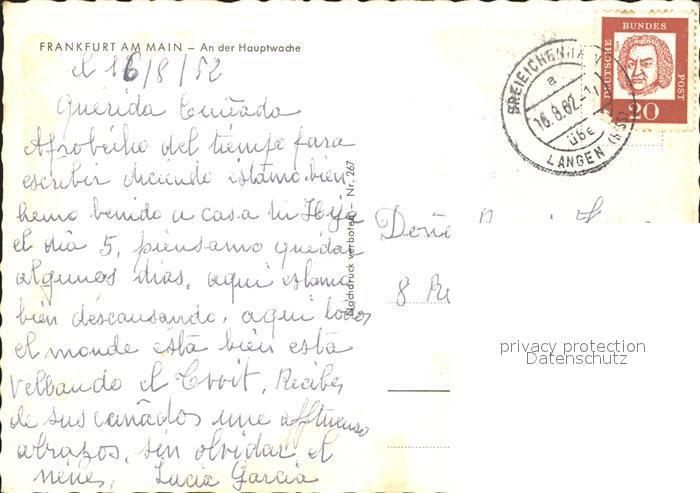 FRANKFURT AM MAIN – An der Hauptwache
el 16/8/52
Querida Cuñada
Afrobecho del tiempo para
escribir diciendo estamo bien
hemo benido a casa tu Hija
el dia 5, piensamo quedar
algunos dias, aqui estamo
bien descausando, aqui todos
el monde esta bien esta
el Recibes
de sus cañados une afftueuso
abrazos, sin olvidar el
nenes, Lucia Garcia
Nachdruck verboten – Nr. 267
DEUTSCHE BUNDES POST
20
DREIEICHENHAIN
a
16.8.62
über
LANGEN (HESS)
Doña
8
privacy protection
Datenschutz